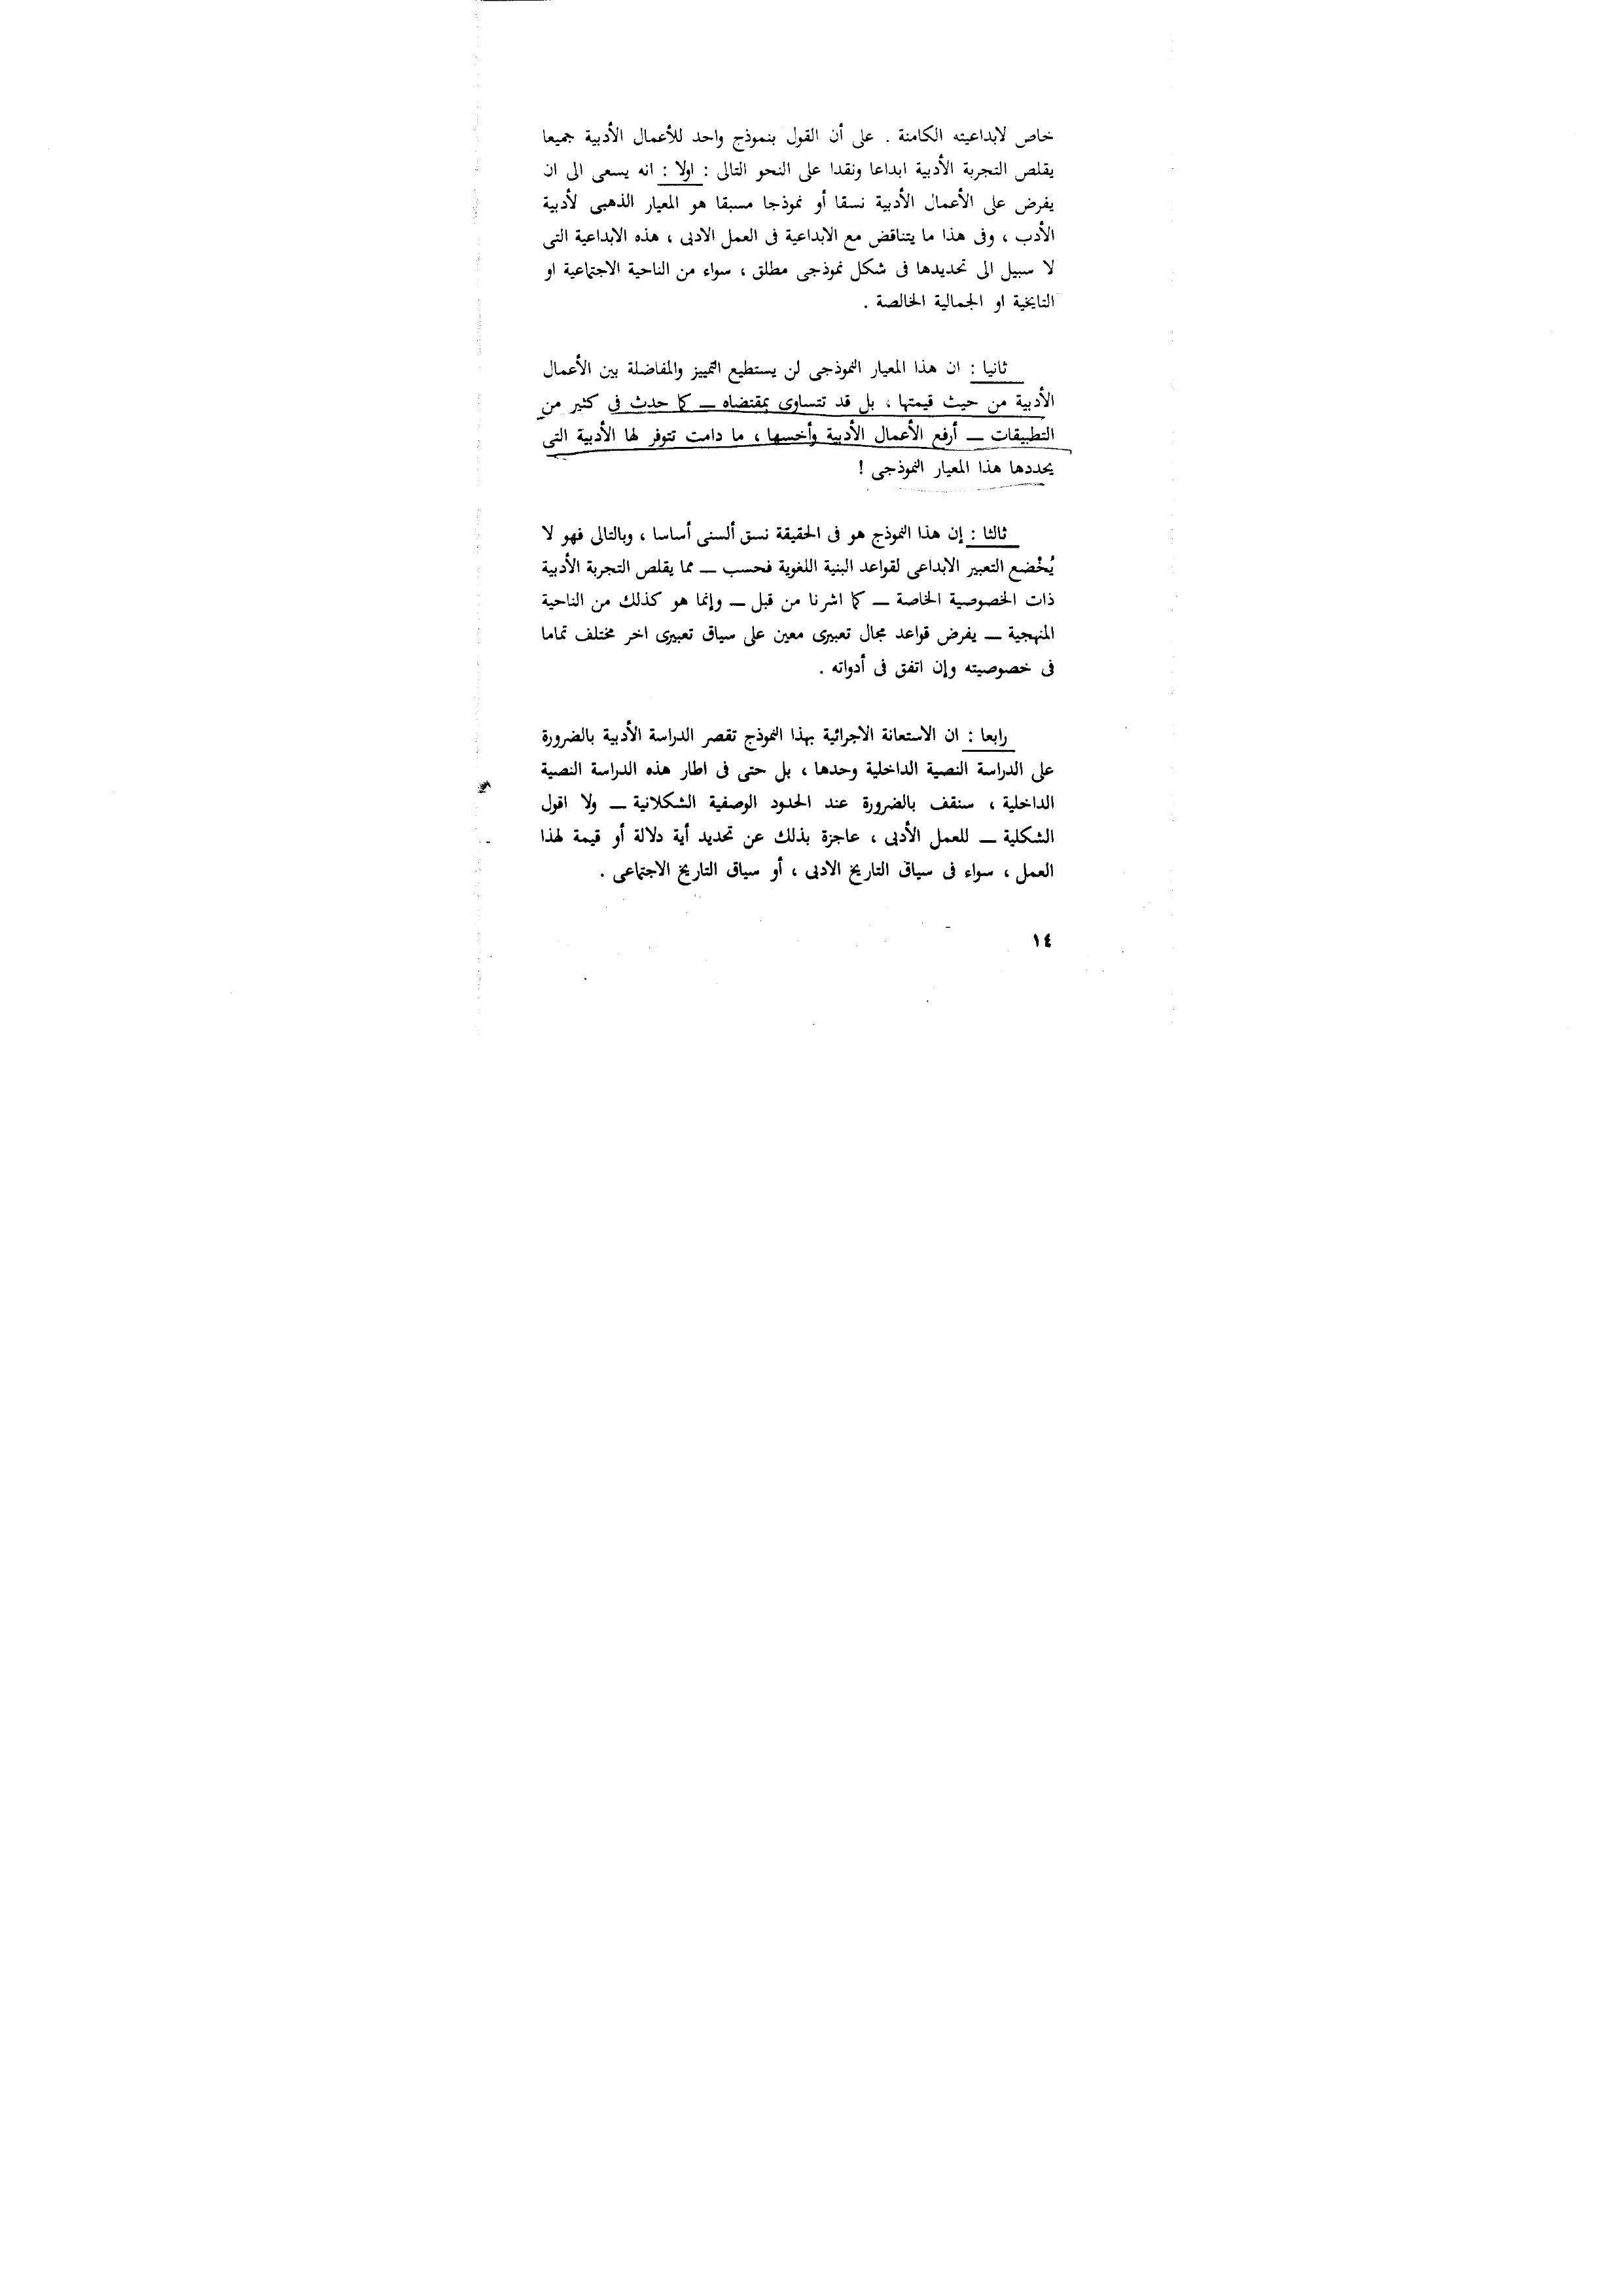 خاص لابداعيته الكامنة . على أن القول بنموذج واحد للأعمال الأدبية جميعا
يقلص التجربة الأدبية ابداعا ونقدا على النحو التالى : اولا : انه يسعى الى ان
يفرض على الأعمال الأدبية نسقا أو نموذجا مسبقا هو المعيار الذهبى لأدبية
الأدب ، وفى هذا ما يتناقض مع الابداعية فى العمل الادبى ، هذه الابداعية التى
لا سبيل الى تحديدها فى شكل نموذجى مطلق ، سواء من الناحية الاجتماعية او
التايخية او الجمالية الخالصة .
ثانيا : ان هذا المعيار النموذجى لن يستطيع التمييز والمفاضلة بين الأعمال
الأدبية من حيث قيمتها ، بل قد تتساوى بمقتضاه ــ كما حدث فى كثير من
التطبيقات ــ أرفع الأعمال الأدبية وأخسها ، ما دامت تتوفر لها الأدبية التى
يحددها هذا المعيار النموذجى !
ثالثا : إن هذا النموذج هو فى الحقيقة نسق ألسنى أساسا ، وبالتالى فهو لا
يُخْضع التعبير الابداعى لقواعد البنية اللغوية فحسب ــ مما يقلص التجربة الأدبية
ذات الخصوصية الخاصة ــ كما اشرنا من قبل ــ وإنما هو كذلك من الناحية
المنهجية ــ يفرض قواعد مجال تعبيرى معين على سياق تعبيرى اخر مختلف تماما
فى خصوصيته وإن اتفق فى أدواته .
رابعا : ان الاستعانة الاجرائية بهذا النموذج تقصر الدراسة الأدبية بالضرورة
على الدراسة النصية الداخلية وحدها ، بل حتى فى اطار هذه الدراسة النصية
الداخلية ، سنقف بالضرورة عند الحدود الوصفية الشكلانية ــ ولا اقول
الشكلية ــ للعمل الأدبى ، عاجزة بذلك عن تحديد أية دلالة أو قيمة لهذا
العمل ، سواء فى سياق التاريخ الادبى ، أو سياق التاريخ الاجتماعى .
١٤